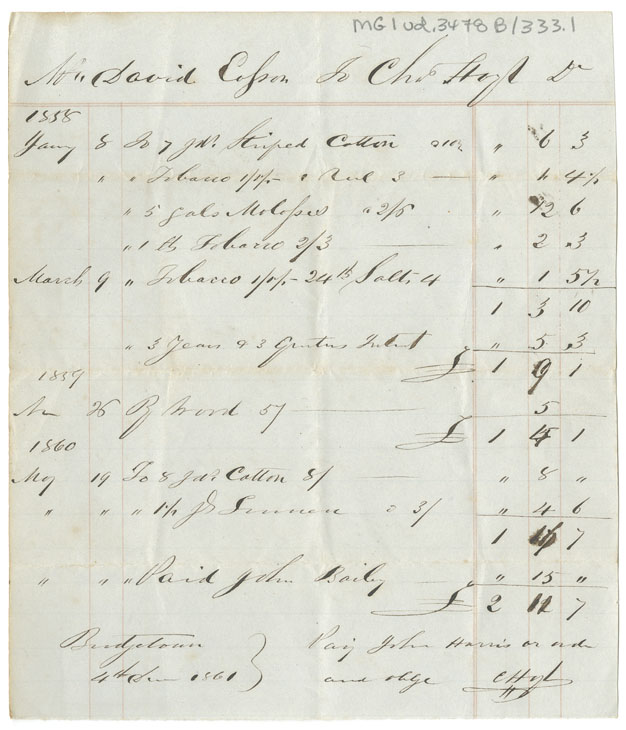 MG 1 vol. 3478 B/333.1
Mr David Esson To Chas Hoyt Dr
1858
Jany 8 To 7 yds Striped Cotton " 6 3
" " Tobacco 1/1½ 3 " 4½
" 5 gals Molasses 2/6 " 12 6
" 1 lb Tobacco 2/3 " 2 3
March 9 " Tobacco 1/1½ 24 lb Salts 4 " 1 5½
1 3 10
" 3 Years & 3 Intrst " 5 3
£ 1 9 1
1859
26 By Word 5/ 5
£ 1 4 1
1860
May 19 To 8 yds Cotton 8/ " 8 "
" " " 1½ yd 3/ " 4 6
1 16 7
" " " Paid John Baily " 15 "
£ 2 11 7
Bridgetown Pay John Harris or order
4th 1861 and oblge CHoyt